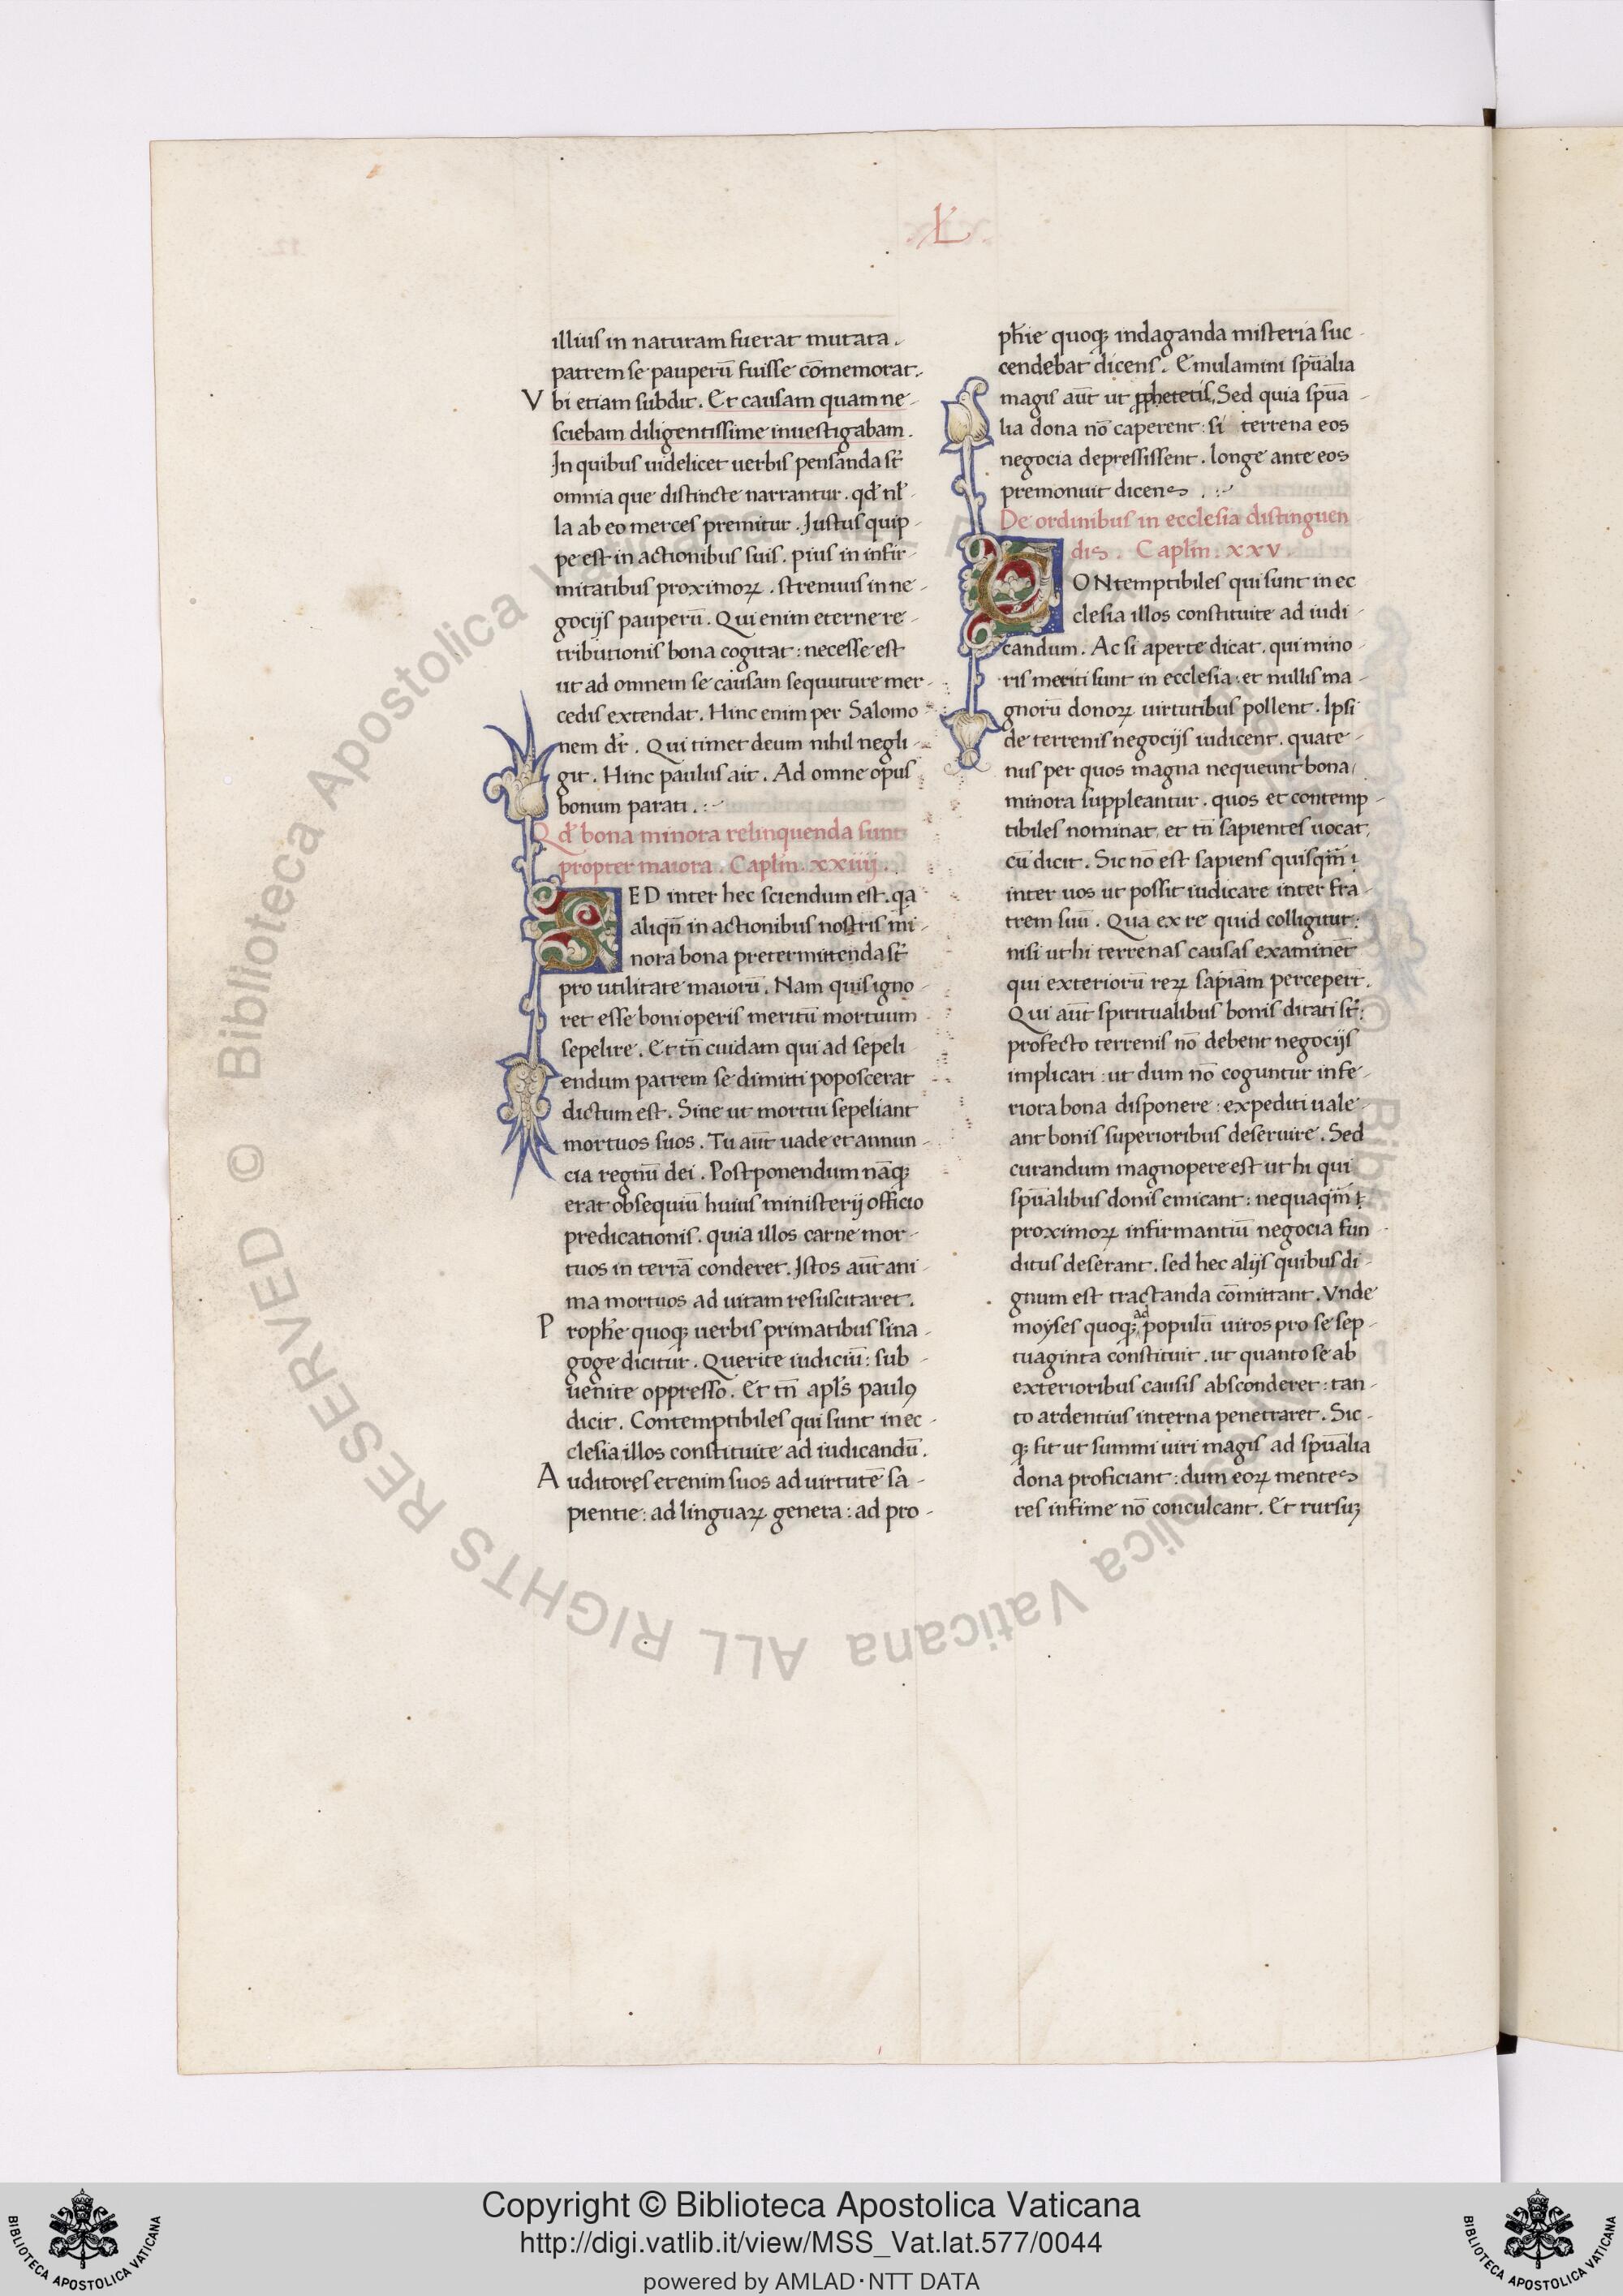 L
illius in naturam fuerat mutata.
patrem se pauperū fuisse cōmemorat.
Vbi etiam subdit. Et causam quam ne-
sciebam diligentissime inuestigabam.
In quibus uidelicet uerbis pensanda st̄
omnia que distincte narrantur. qđ nł-
la ab eo merces premitur. Iustus quip-
pe est in actionibus suis. pius in infir-
mitatibus proximoꝝ. strenuus in ne-
gocijs pauperū. Qui enim eterne re-
tributionis bona cogitat: necesse est
ut ad omnem se causam sequuture mer-
cedis extendat. Hinc enim per Salomo-
nem dr̄. Qui timet deum nihil negli-
git. Hinc paulus ait. Ad omne opus
bonum parati.:~
Qđ bona minora relinquenda sunt
propter maiora. Caplm̄. xxiiij.
SED inter hec sciendum est. qa
aliqn̄ in actionibus nostris mi-
nora bona pretermittenda st̄
pro utilitate maiorū. Nam quis igno-
ret esse boni operis meritū mortuum
sepelire. Et tn̄ cuidam qui ad sepeli
endum patrem se dimitti poposcerat
dictum est. Sine ut mortui sepeliant
mortuos suos. Tu aūt uade et annun-
cia regnū dei. Postponendum nāqꝫ
erat obsequiū huius ministerij officio
predicationis. quia illos carne mor-
tuos in terrā conderet. Istos aūt ani-
ma mortuos ad uitam resuscitaret.
Prophe quoqꝫ uerbis primatibus sina-
goge dicitur. Querite iudiciū: sub-
uenite oppresso. Et tn̄ apl̄s paulꝰ
dicit. Contemptibiles qui sunt in ec-
clesia illos constituite ad iudicandū.
Auditores etenim suos ad uirtutē sa-
pientie: ad linguaꝝ genera: ad pro-
phīe quoqꝫ indaganda misteria suc-
cendebat dicens. Emulamini spūalia
magis aūt ut pphetetis. Sed quia spūa-
lia dona nō caperent: si terrena eos
negocia depressissent. longe ante eos
premonuit dicens .:~
De ordinibus in ecclesia distinguen
dis. Caplm̄. xxv.
CONtemptibiles qui sunt in ec
clesia illos constituite ad iudi-
candum. Ac si aperte dicat. qui mino-
ris meriti sunt in ecclesia: et nullis ma-
gnorū donoꝝ uirtutibus pollent. Ipsi
de terrenis negocijs iudicent. quate-
nus per quos magna nequeunt bona,
minora suppleantur. quos et contemp-
tibiles nominat, et tn̄ sapientes uocat,
cū dicit. Sic nō est sapiens quisqm̄
inter uos ut possit iudicare inter fra-
trem suū. Qua ex re quid colligitur:
nisi ut hi terrenas causas examinēt
qui exteriorū reꝝ sapiam̄ percepert̄.
Qui aūt spiritualibus bonis ditati st̄:
profecto terrenis nō debent negocijs
implicari: ut dum nō coguntur infe-
riora bona disponere: expediti uale-
ant bonis superioribus deseruire. Sed
curandum magnopere est ut hi qui
spūalibus donis emicant: nequaqm̄
proximoꝝ infirmantiū negocia fun-
ditus deserant. sed hec alijs quibus di-
gnum est tractanda cōmittant. Vnde
moyses quoqꝫ ad populū uiros pro se sep-
tuaginta constituit. ut quanto se ab
exterioribus causis absconderet: tan-
to ardentius interna penetraret. Sic-
qꝫ fit ut summi uiri magis ad spūalia
dona proficiant: dum eoꝝ mentes
res infime nō conculcant. Et rursuꝫ
© Biblioteca Apostolica Vaticana ALL RIGHTS RESERVED
Copyright © Biblioteca Apostolica Vaticana
http://digi.vatlib.it/view/MSS_Vat.lat.577/0044
powered by AMLAD·NTT DATA
BIBLIOTECA APOSTOLICA VATICANA
BIBLIOTECA APOSTOLICA VATICANA